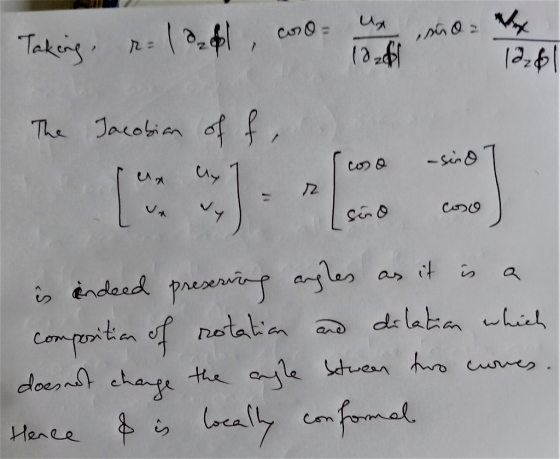 Taking, r = |∂_z ϕ| , cosθ = u_x / |∂_z ϕ| , sinθ = v_x / |∂_z ϕ|
The Jacobian of f,
[ u_x u_y ; v_x v_y ] = r [ cosθ -sinθ ; sinθ cosθ ]
is indeed preserving angles as it is a
composition of rotation and dilation which
doesnot change the angle between two curves.
Hence ϕ is locally conformal.